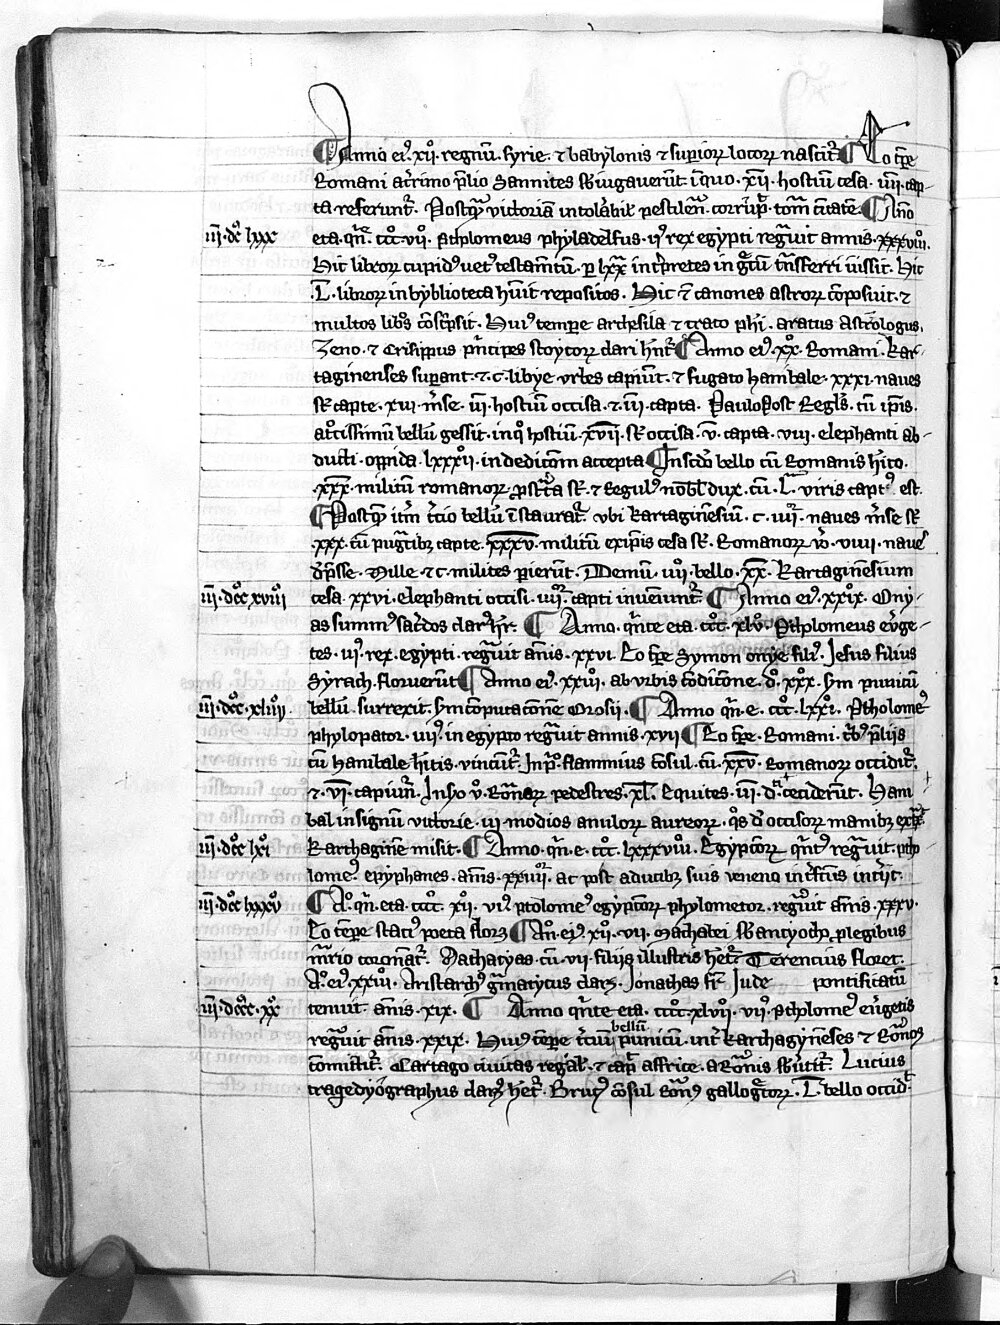 ¶ Anno eiꝰ .xij. regnū. syrie. ⁊ babylonis ⁊ suꝑioꝝ locoꝝ nascit᷑. ¶ Eo tp̄e
Romani acͥrimo p̄lio Sannites sƀiugauerūt. ī quo .xij. hostiū cesa. iiij. cap-
ta referunt᷑. Postq̄ꝫ victoriā intolͣbiĺ pestileñ. corrūp̄. totā ciuitatē. ¶ Anno
iij. dcͦ. lxx
eta. qñ. ccͦc. vij. Ptholomeus phyladelfus. ijꝰ rex egypti regͣuit annis. xxxviij.
Hic libroꝝ cupidꝰ uetꝰ testamētū. ꝑ lxx int̄pretes in gͣcū tͣnsferri iussit. Hic
.L. libroꝝ in bybliotheca hūit repositos. Hic ⁊ canones astroꝝ cōposuit. ⁊
multos libͦs cōscͥpsit. Huiꝰ tempore archesila ⁊ crato phi. aratus astrologus.
Zeno. ⁊ Crisippus pͥncipes stoycoꝝ clari hn̄t᷑ ¶ Anno eiꝰ. xx. Romani. Kar-
taginenses suꝑant. ⁊. c. libye urbes capiūt. ⁊ fugato hanibale. xxxi. naues
sͬ capte. xvi. mͬse. iij. hostiū occisa. ⁊. iij. capta. Paulopost Reglͦs. cū ip̄is.
atͦcissimū bellū gessit. in qͦ hostiū. xvij. sͬ occisa. v. capta. viij. elephanti ab-
ducti. oppida. lxxxij. in dedicōem accepta ¶ In scd̄o bello cū Romanis hīto.
.xxx. militū romanoꝝ. ꝓstrͣta sͬ. ⁊ Regulꝰ nobl̓ dux. cū. L. viris captꝰ est.
¶ Postq̄ꝫ itm̄ tͥcio bellū īstauratͬ. ubi kartaginēsiū. c. iiij. naues mͬse sͬ
.xxx. cū pugͣtibꝫ capte. xxxv. militū ex ip̄is cesa sͬ. Romanoꝝ vͦ. viiij. naueˢ
dp̄sse. Mille ⁊ c. milites ꝑierūt. Demū. iiij. bello. xx. Kartaginēsium
iij. dcͦc xviij
cesa. xxvi. elephanti occisi. iiij. capti inueniunt᷑ ¶ Anno eiꝰ. xxix. Ony-
as summꝰ sac̄dos clarꝰ hͬ. ¶ Anno. qͥnte eta. ccͦc. xlv. Ptholomeus eu̓ge-
tes. iijꝰ. rex. egypti. regͣuit añis. xxvi. Eo tp̄e Symon onye filiꝰ. Jesus filius
Syrach. floruerūt ¶ Anno eiꝰ. xxiij. ab urbis cōditione. dͦ. xxx. sm̄ punicū
iij. dcͦc. xliiij
bellū. surrexit. sm̄ computacōnē Orosii. ¶ Anno qñ. e. ccͦc. lxxi. Ptholomeꝰ
phylopator. iiijꝰ. in egypto regͣuit annis. xvij ¶ Eo tp̄e. Romani. tͥbꝰ p̄liis
cū hanibale hītis. vincūt᷑. In pͥo. flaminius cōsul. cū. xxv. Romanoꝝ occidit᷑.
⁊. vi. capiunt᷑. In scͦo v̓. Romͣoꝝ pedestres. xl. Equites. iij. dͦ. ceciderūt. Hani
bal insignū uictorie. iij modios anuloꝝ aureoꝝ. qͦs dͤ occisoꝝ manibꝫ extͣxͭ
iij. dcͦc lxi
Karthaginē misit. ¶ Anno. qñ. e. ccͦc. lxxxviij. Egyptioꝝ qͥntꝰ regͣuit. ptho
lomeꝰ. epyphanes. añis. xxiiij. ac post a ducibꝫ suis veneno int̄fcūs int̓ijt.
iij. dcͦc lxxxv
¶ Aͦ. qñ. eta. ccͦcc. xij. viꝰ ptolomeꝰ egyptioꝝ phylometor. regͣuit añis. xxxv.
Eo tēpe staciꝰ poeta florꝫ ¶ Añ. eiꝰ. xij. vij. Machabei sƀ antyocho ꝓ legibus
mͬtirio coronāt᷑. Mathatyas. cū. vij. filijs illustris het᷑. Terencius floret.
Aͦ. eiꝰ. xxiij. Aristarchꝰ gͣmaticus clarꝫ. Jonathas fͬ Jude pontificatū
iij. dccͦcc. xx
tenuit. añis. xix. ¶ Anno qͥnte eta. ccͦcc. xlvij. vijꝰ. Ptholomeꝰ eu̓getis
regͣuit añis. xxix. Huiꝰ tp̄e tͥciū bellū punicū. int̄ karthagynēses ⁊ Romͣos
cōmittit᷑. Cartago ciuitas regaĺ. ⁊ cap̄ affrice. a Romͣnis sƀuertit᷑. Lucius
tragedyographus clarꝰ het᷑. Brutꝰ cōsul romͣꝰ gallogͣecoꝝ. L. bello occidͭ.